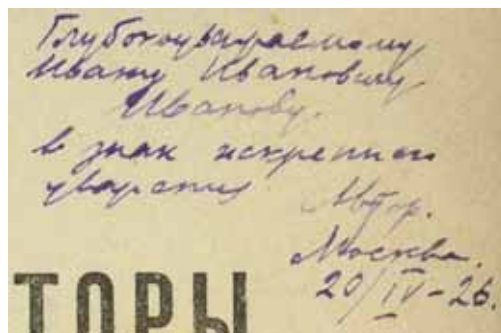 Глубокоуважаемому
Ивану Ивановичу
Иванову.
в знак искреннего
уважения
Автор.
Москва.
20/IV-26.
ТОРЫ